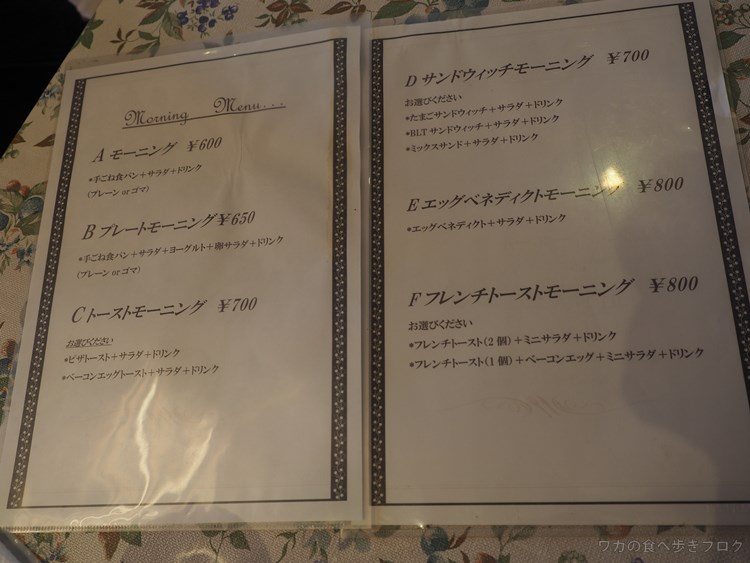 Morning Menu...
A モーニング ¥600
*手ごね食パン+サラダ+ドリンク
(プレーン or ゴマ)
B プレートモーニング ¥650
*手ごね食パン+サラダ+ヨーグルト+卵サラダ+ドリンク
(プレーン or ゴマ)
C トーストモーニング ¥700
お選びください
*ピザトースト+サラダ+ドリンク
*ベーコンエッグトースト+サラダ+ドリンク
D サンドウィッチモーニング ¥700
お選びください
*たまごサンドウィッチ+サラダ+ドリンク
*BLT サンドウィッチ+サラダ+ドリンク
*ミックスサンド+サラダ+ドリンク
E エッグベネディクトモーニング ¥800
*エッグベネディクト+サラダ+ドリンク
F フレンチトーストモーニング ¥800
お選びください
*フレンチトースト(2 個)+ミニサラダ+ドリンク
*フレンチトースト(1 個)+ベーコンエッグ+ミニサラダ+ドリンク
ワカの食べ歩きブログ